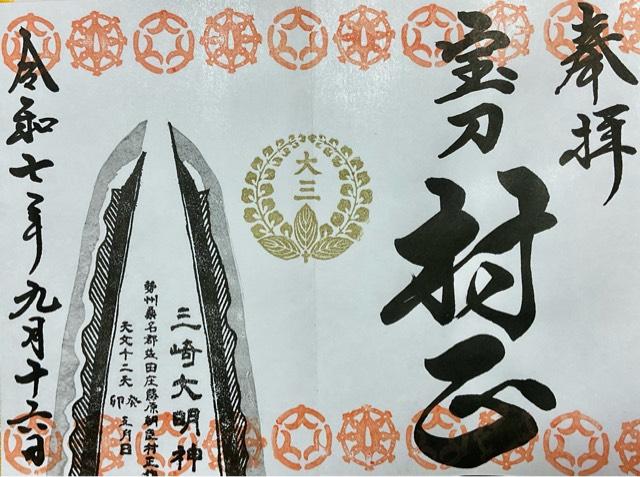 奉拝
宝刀
村正
大三
三崎大明神
勢州桑名郡益田庄藤原朝臣村正
天文十二天癸卯五月日
令和七年九月十六日